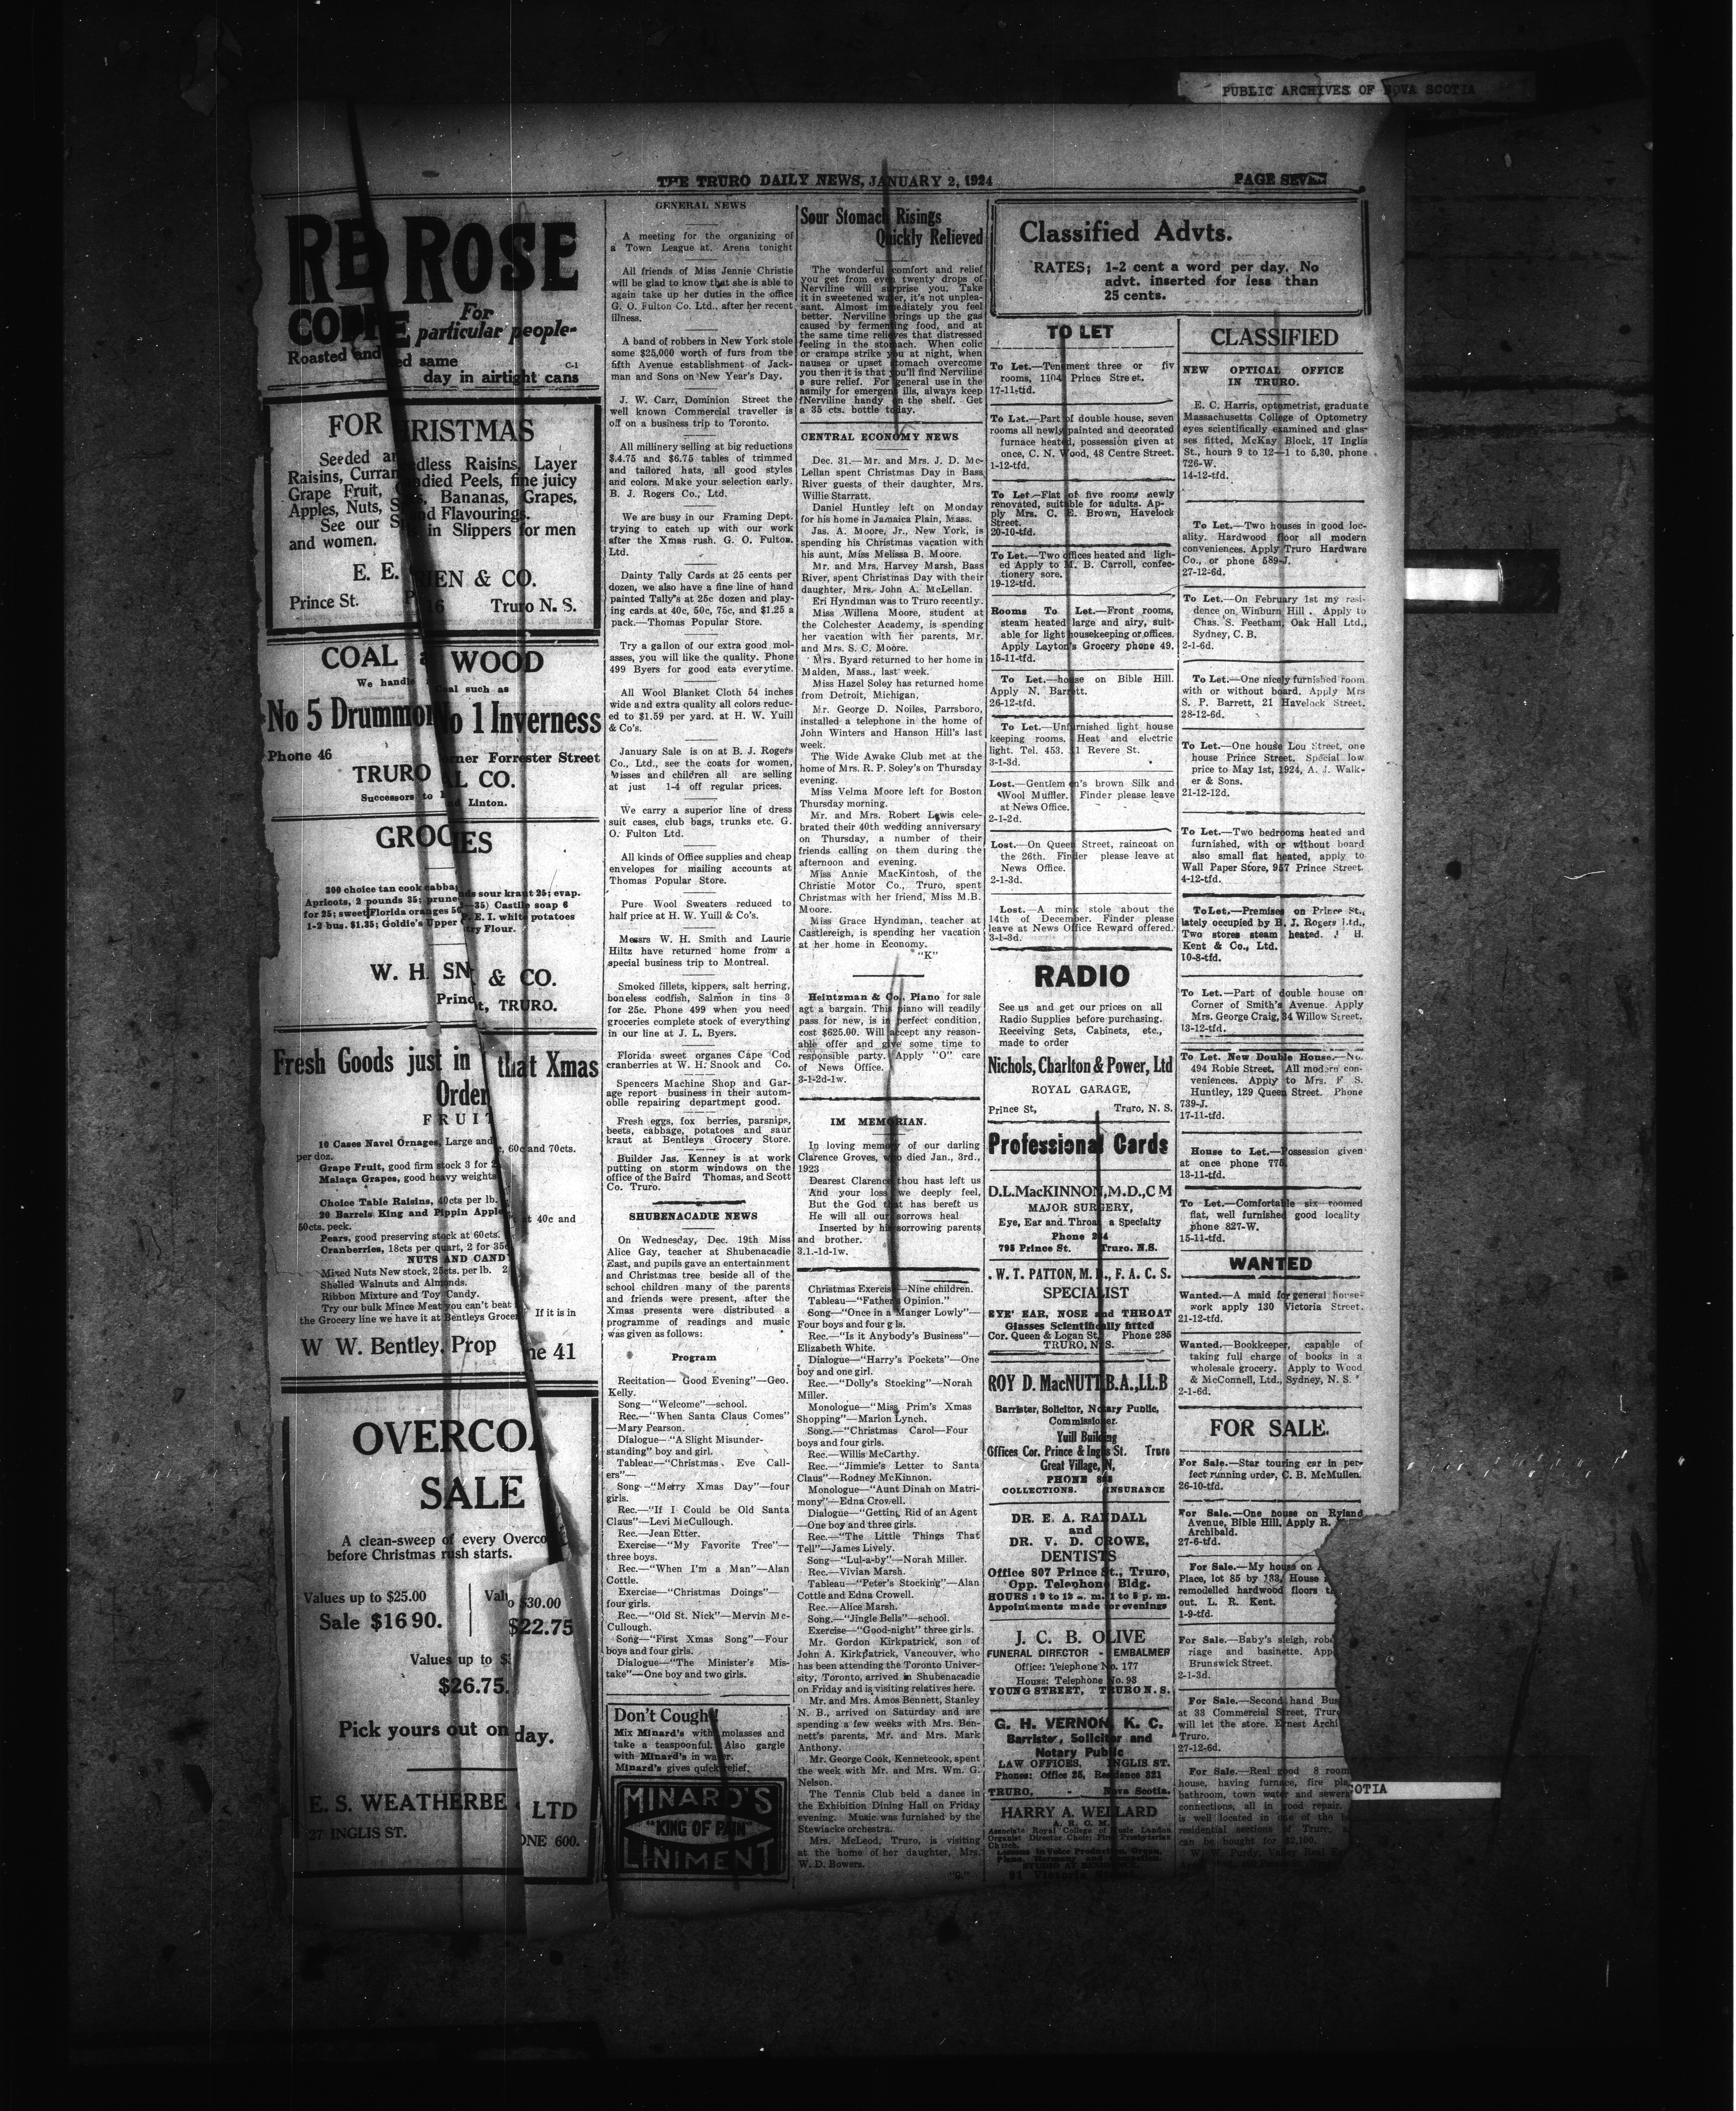 PUBLIC ARCHIVES OF NOVA SCOTIA
THE TRURO DAILY NEWS, JANUARY 2, 1924
PAGE SEVEN
RED ROSE
For
particular people-
Roasted and
ed same
C-1
day in airtight cans
FOR
RISTMAS
Seeded
dless Raisins, Layer
Raisins, Curran
died Peels, fine juicy
Grape Fruit,
Bananas, Grapes,
Apples, Nuts, S
nd Flavourings.
See our S
in Slippers for men
and women.
E. E.
IEN & CO.
Prince St.
16
Truro N. S.
COAL
WOOD
We handle
Coal such as
No 5 Drummon
No 1 Inverness
Phone 46
rner Forrester Street
TRURO
L CO.
Successors to
Linton.
GROC
IES
300 choice tan cook cabba
ds sour kraut 25; evap.
Apricots, 2 pounds 35; prune
35) Castile soap 6
for 25; sweet Florida oranges 50
P. E. I. white potatoes
1-2 bus. $1.35; Goldie's Upper
try Flour.
W. H. SN
& CO.
Princ
t, TRURO.
Fresh Goods just in
that Xmas
Order
FRUIT
10 Cases Navel Ornages, Large and
60c and 70cts.
per doz.
Grape Fruit, good firm stock 3 for 2
Malaga Grapes, good heavy weights
Choice Table Raisins, 40cts per lb.
20 Barrels King and Pippin Apple
at 40c and
50cts. peck.
Pears, good preserving stock at 60cts.
Cranberries, 18cts per quart, 2 for 35c
NUTS AND CAND
Mixed Nuts New stock, 25cts. per lb. 2
Shelled Walnuts and Almonds.
Ribbon Mixture and Toy Candy.
Try our bulk Mince Meat you can't beat
If it is in
the Grocery line we have it at Bentleys Grocer
W W. Bentley, Prop
ne 41
OVERCO
SALE
A clean-sweep of every Overco
before Christmas rush starts.
Values up to $25.00
Val
o $30.00
Sale $16 90.
$22.75
Values up to $3
$26.75.
Pick yours out on
day.
E. S. WEATHERBE
LTD
27 INGLIS ST.
ONE 600.
GENERAL NEWS
A meeting for the organizing of
a Town League at. Arena tonight
All friends of Miss Jennie Christie
will be glad to know that she is able to
again take up her duties in the office
G. O. Fulton Co. Ltd., after her recent
illness.
A band of robbers in New York stole
some $25,000 worth of furs from the
fifth Avenue establishment of Jack-
man and Sons on New Year's Day.
J. W. Carr, Dominion Street the
well known Commercial traveller is
off on a business trip to Toronto.
All millinery selling at big reductions
$4.75 and $6.75 tables of trimmed
and tailored hats, all good styles
and colors. Make your selection early.
B. J. Rogers Co., Ltd.
We are busy in our Framing Dept.
trying to catch up with our work
after the Xmas rush. G. O. Fulton.
Ltd.
Dainty Tally Cards at 25 cents per
dozen, we also have a fine line of hand
painted Tally's at 25c dozen and play-
ing cards at 40c, 50c, 75c, and $1.25 a
pack.—Thomas Popular Store.
Try a gallon of our extra good mol-
asses, you will like the quality. Phone
499 Byers for good eats everytime.
All Wool Blanket Cloth 54 inches
wide and extra quality all colors reduc-
ed to $1.59 per yard. at H. W. Yuill
& Co's.
January Sale is on at B. J. Rogers
Co., Ltd., see the coats for women,
Misses and children all are selling
at just 1-4 off regular prices.
We carry a superior line of dress
suit cases, club bags, trunks etc. G.
O. Fulton Ltd.
All kinds of Office supplies and cheap
envelopes for mailing accounts at
Thomas Popular Store.
Pure Wool Sweaters reduced to
half price at H. W. Yuill & Co's.
Messrs W. H. Smith and Laurie
Hiltz have returned home from a
special business trip to Montreal.
Smoked fillets, kippers, salt herring,
boneless codfish, Salmon in tins 3
for 25c. Phone 499 when you need
groceries complete stock of everything
in our line at J. L. Byers.
Florida sweet organes Cape Cod
cranberries at W. H. Snook and Co.
Spencers Machine Shop and Gar-
age report business in their autom-
obile repairing department good.
Fresh eggs, fox berries, parsnips,
beets, cabbage, potatoes and saur
kraut at Bentleys Grocery Store.
Builder Jas. Kenney is at work
putting on storm windows on the
office of the Baird Thomas, and Scott
Co. Truro.
SHUBENACADIE NEWS
On Wednesday, Dec. 19th Miss
Alice Gay, teacher at Shubenacadie
East, and pupils gave an entertainment
and Christmas tree beside all of the
school children many of the parents
and friends were present, after the
Xmas presents were distributed a
programme of readings and music
was given as follows:
Program
Recitation— Good Evening"—Geo.
Kelly.
Song—"Welcome"—school.
Rec.—"When Santa Claus Comes"
—Mary Pearson.
Dialogue—"A Slight Misunder-
standing" boy and girl.
Tableau—"Christmas Eve Call-
ers"—
Song—"Merry Xmas Day"—four
girls.
Rec.—"If I Could be Old Santa
Claus"—Levi McCullough.
Rec.—Jean Etter.
Exercise—"My Favorite Tree"—
three boys.
Rec.—"When I'm a Man"—Alan
Cottle.
Exercise—"Christmas Doings"—
four girls.
Rec.—"Old St. Nick"—Mervin Mc-
Cullough.
Song—"First Xmas Song"—Four
boys and four girls.
Dialogue—"The Minister's Mis-
take"—One boy and two girls.
Don't Cough
Mix Minard's with molasses and
take a teaspoonful. Also gargle
with Minard's in water.
Minard's gives quick relief.
MINARD'S
"KING OF PAIN"
LINIMENT
Sour Stomach Risings
Quickly Relieved
The wonderful comfort and relief
you get from even twenty drops of
Nerviline will surprise you. Take
it in sweetened water, it's not unplea-
sant. Almost immediately you feel
better. Nerviline brings up the gas
caused by fermenting food, and at
the same time relieves that distressed
feeling in the stomach. When colic
or cramps strike you at night, when
nausea or upset stomach overcome
you then it is that you'll find Nerviline
a sure relief. For general use in the
family for emergent ills, always keep
fNerviline handy on the shelf. Get
a 35 cts. bottle today.
CENTRAL ECONOMY NEWS
Dec. 31.—Mr. and Mrs. J. D. Mc-
Lellan spent Christmas Day in Bass
River guests of their daughter, Mrs.
Willie Starratt.
Daniel Huntley left on Monday
for his home in Jamaica Plain, Mass.
Jas. A. Moore, Jr., New York, is
spending his Christmas vacation with
his aunt, Miss Melissa B. Moore.
Mr. and Mrs. Harvey Marsh, Bass
River, spent Christmas Day with their
daughter, Mrs. John A. McLellan.
Eri Hyndman was to Truro recently.
Miss Willena Moore, student at
the Colchester Academy, is spending
her vacation with her parents, Mr.
and Mrs. S. C. Moore.
Mrs. Byard returned to her home in
Malden, Mass., last week.
Miss Hazel Soley has returned home
from Detroit, Michigan.
Mr. George D. Noiles, Parrsboro,
installed a telephone in the home of
John Winters and Hanson Hill's last
week.
The Wide Awake Club met at the
home of Mrs. R. P. Soley's on Thursday
evening.
Miss Velma Moore left for Boston
Thursday morning.
Mr. and Mrs. Robert Lewis cele-
brated their 40th wedding anniversary
on Thursday, a number of their
friends calling on them during the
afternoon and evening.
Miss Annie MacKintosh, of the
Christie Motor Co., Truro, spent
Christmas with her friend, Miss M.B.
Moore.
Miss Grace Hyndman, teacher at
Castlereigh, is spending her vacation
at her home in Economy.
"K"
Heintzman & Co., Piano for sale
agt a bargain. This piano will readily
pass for new, is in perfect condition,
cost $625.00. Will accept any reason-
able offer and give some time to
responsible party. Apply "O" care
of News Office.
3-1-2d-1w.
IM MEMORIAN.
In loving memory of our darling
Clarence Groves, who died Jan., 3rd.,
1923
Dearest Clarence thou hast left us
And your loss we deeply feel,
But the God that has bereft us
He will all our sorrows heal
Inserted by his sorrowing parents
and brother.
3.1.-1d-1w.
Christmas Exercise—Nine children.
Tableau—"Fathers Opinion."
Song—"Once in a Manger Lowly"—
Four boys and four g ls.
Rec.—"Is it Anybody's Business"—
Elizabeth White.
Dialogue—"Harry's Pockets"—One
boy and one girl.
Rec.—"Dolly's Stocking"—Norah
Miller.
Monologue—"Miss Prim's Xmas
Shopping"—Marion Lynch.
Song.—"Christmas Carol—Four
boys and four girls.
Rec.—Willis McCarthy.
Rec.—"Jimmie's Letter to Santa
Claus"—Rodney McKinnon.
Monologue—"Aunt Dinah on Matri-
mony"—Edna Crowell.
Dialogue—"Getting Rid of an Agent
—One boy and three girls.
Rec.—"The Little Things That
Tell"—James Lively.
Song—"Lul-a-by"—Norah Miller.
Rec.—Vivian Marsh.
Tableau—"Peter's Stocking"—Alan
Cottle and Edna Crowell.
Rec.—Alice Marsh.
Song.—"Jingle Bells"—school.
Exercise—"Good-night" three girls.
Mr. Gordon Kirkpatrick, son of
John A. Kirkpatrick, Vancouver, who
has been attending the Toronto Univer-
sity, Toronto, arrived in Shubenacadie
on Friday and is visiting relatives here.
Mr. and Mrs. Amos Bennett, Stanley
N. B., arrived on Saturday and are
spending a few weeks with Mrs. Ben-
nett's parents, Mr. and Mrs. Mark
Anthony.
Mr. George Cook, Kennetcook, spent
the week with Mr. and Mrs. Wm. G.
Nelson.
The Tennis Club held a dance in
the Exhibition Dining Hall on Friday
evening. Music was furnished by the
Stewiacke orchestra.
Mrs. McLeod, Truro, is visiting
at the home of her daughter, Mrs.
W. D. Bowers.
Classified Advts.
RATES; 1-2 cent a word per day. No
advt. inserted for less than
25 cents.
TO LET
To Let.—Tenement three or fiv
rooms, 1104 Prince Street.
17-11-tfd.
To Let.—Part of double house, seven
rooms all newly painted and decorated
furnace heated, possession given at
once, C. N. Wood, 48 Centre Street.
1-12-tfd.
To Let—Flat of five rooms newly
renovated, suitable for adults. Ap-
ply Mrs. C. E. Brown, Havelock
Street.
20-10-tfd.
To Let.—Two offices heated and ligh-
ed Apply to M. B. Carroll, confec-
tionery sore.
19-12-tfd.
Rooms To Let.—Front rooms,
steam heated large and airy, suit-
able for light housekeeping or offices.
Apply Layton's Grocery phone 49.
15-11-tfd.
To Let.—house on Bible Hill.
Apply N. Barrett.
26-12-tfd.
To Let.—Unfurnished light house
keeping rooms. Heat and electric
light. Tel. 453. 31 Revere St.
3-1-3d.
Lost.—Gentlemen's brown Silk and
Wool Muffler. Finder please leave
at News Office.
2-1-2d.
Lost.—On Queen Street, raincoat on
the 26th. Finder please leave at
News Office.
2-1-3d.
Lost.—A mink stole about the
14th of December. Finder please
leave at News Office Reward offered.
3-1-3d.
RADIO
See us and get our prices on all
Radio Supplies before purchasing.
Receiving Sets, Cabinets, etc.,
made to order
Nichols, Charlton & Power, Ltd
ROYAL GARAGE,
Prince St,
Truro, N. S.
Professional Cards
D.L.MacKINNON,M.D.,C M
MAJOR SURGERY,
Eye, Ear and Throat a Specialty
Phone 2 4
795 Prince St. Truro. N.S.
W. T. PATTON, M. D., F. A. C. S.
SPECIALIST
EYE' EAR, NOSE and THROAT
Glasses Scientifically fitted
Cor. Queen & Logan St. Phone 285
TRURO, N. S.
ROY D. MacNUTT B.A.,LL.B
Barrister, Solicitor, Notary Public,
Commissioner.
Yuill Building
Offices Cor. Prince & Inglis St. Truro
Great Village, N,
PHONE
COLLECTIONS. INSURANCE
DR. E. A. RANDALL
and
DR. V. D. CROWE,
DENTISTS
Office 807 Prince St., Truro,
Opp. Telephone Bldg.
HOURS : 9 to 12 a. m. 1 to 5 p. m.
Appointments made for evenings
J. C. B. OLIVE
FUNERAL DIRECTOR - EMBALMER
Office: Telephone No. 177
House: Telephone No. 93
YOUNG STREET, TRURO N. S.
G. H. VERNON, K. C.
Barrister, Solicitor and
Notary Public
LAW OFFICES, INGLIS ST.
Phones: Office 25, Residence 321
TRURO, - Nova Scotia.
HARRY A. WELLARD
A. R. C. M.
Associate Royal College of Music London
Organist Director Choir; First Presbyterian
Church.
CLASSIFIED
NEW OPTICAL OFFICE
IN TRURO.
E. C. Harris, optometrist, graduate
Massachusetts College of Optometry
eyes scientifically examined and glas-
ses fitted, McKay Block, 17 Inglis
St., hours 9 to 12—1 to 5,30. phone
726-W.
14-12-tfd.
To Let.—Two houses in good loc-
ality. Hardwood floor all modern
conveniences. Apply Truro Hardware
Co., or phone 589-J.
27-12-6d.
To Let.—On February 1st my resi-
dence on Winburn Hill . Apply to
Chas. S. Feetham, Oak Hall Ltd.,
Sydney, C. B.
2-1-6d.
To Let.—One nicely furnished room
with or without board. Apply Mrs
S. P. Barrett, 21 Havelock Street.
28-12-6d.
To Let.—One house Lou Street, one
house Prince Street. Special low
price to May 1st, 1924, A. J. Walk-
er & Sons.
21-12-12d.
To Let.—Two bedrooms heated and
furnished, with or without board
also small flat heated, apply to
Wall Paper Store, 957 Prince Street.
4-12-tfd.
To Let.—Premises on Prince St.,
lately occupied by B. J. Rogers Ltd.,
Two stores steam heated. H.
Kent & Co., Ltd.
10-8-tfd.
To Let.—Part of double house on
Corner of Smith's Avenue. Apply
Mrs. George Craig, 34 Willow Street.
13-12-tfd.
To Let. New Double House.—No.
494 Robie Street. All modern con-
veniences. Apply to Mrs. F S.
Huntley, 129 Queen Street. Phone
739-J.
17-11-tfd.
House to Let.—Possession given
at once phone 775.
13-11-tfd.
To Let.—Comfortable six roomed
flat, well furnished good locality
phone 827-W.
15-11-tfd.
WANTED
Wanted.—A maid for general house-
work apply 130 Victoria Street.
21-12-tfd.
Wanted.—Bookkeeper, capable of
taking full charge of books in a
wholesale grocery. Apply to Wood
& McConnell, Ltd., Sydney, N. S.
2-1-6d.
FOR SALE.
For Sale.—Star touring car in per-
fect running order, C. B. McMullen.
26-10-tfd.
For Sale.—One house on Ryland
Avenue, Bible Hill, Apply R.
Archibald.
27-6-tfd.
For Sale.—My house on
Place, lot 85 by 133, House
remodelled hardwood floors t
out. L. R. Kent.
1-9-tfd.
For Sale.—Baby's sleigh, robe
riage and basinette. App
Brunswick Street.
2-1-3d.
For Sale.—Second hand Bu
at 33 Commercial Street, Truro
will let the store. Ernest Archi
Truro.
27-12-6d.
For Sale.—Real good 8 room
house, having furnace, fire pla
bathroom, town water and sewera
connections, all in good repair.
is well located in one of the b
residential sections of Truro, a
can be bought for $2,100.
W. W. Purdy, Valley Real E
COTIA